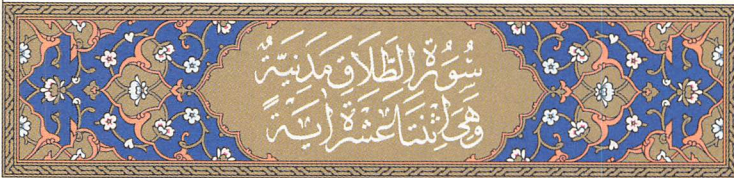 سُورَةُ الطَّلَاقِ مَدَنِيَّةٌ
وَهِيَ اثْنَتَا عَشْرَةَ اٰيَةً